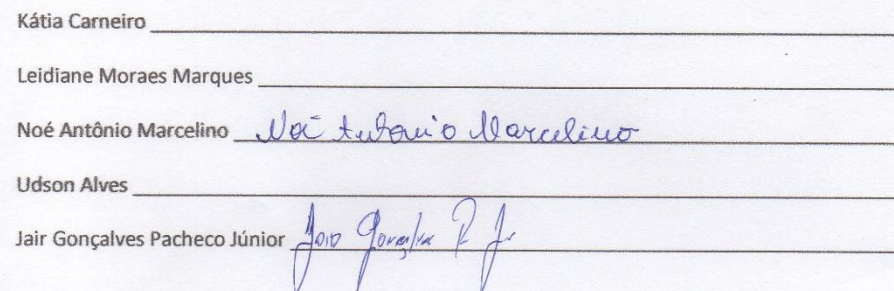 Kátia Carneiro
Leidiane Moraes Marques
Noé Antônio Marcelino Noé Antonio Marcelino
Udson Alves
Jair Gonçalves Pacheco Júnior Gonçalves P. Jr